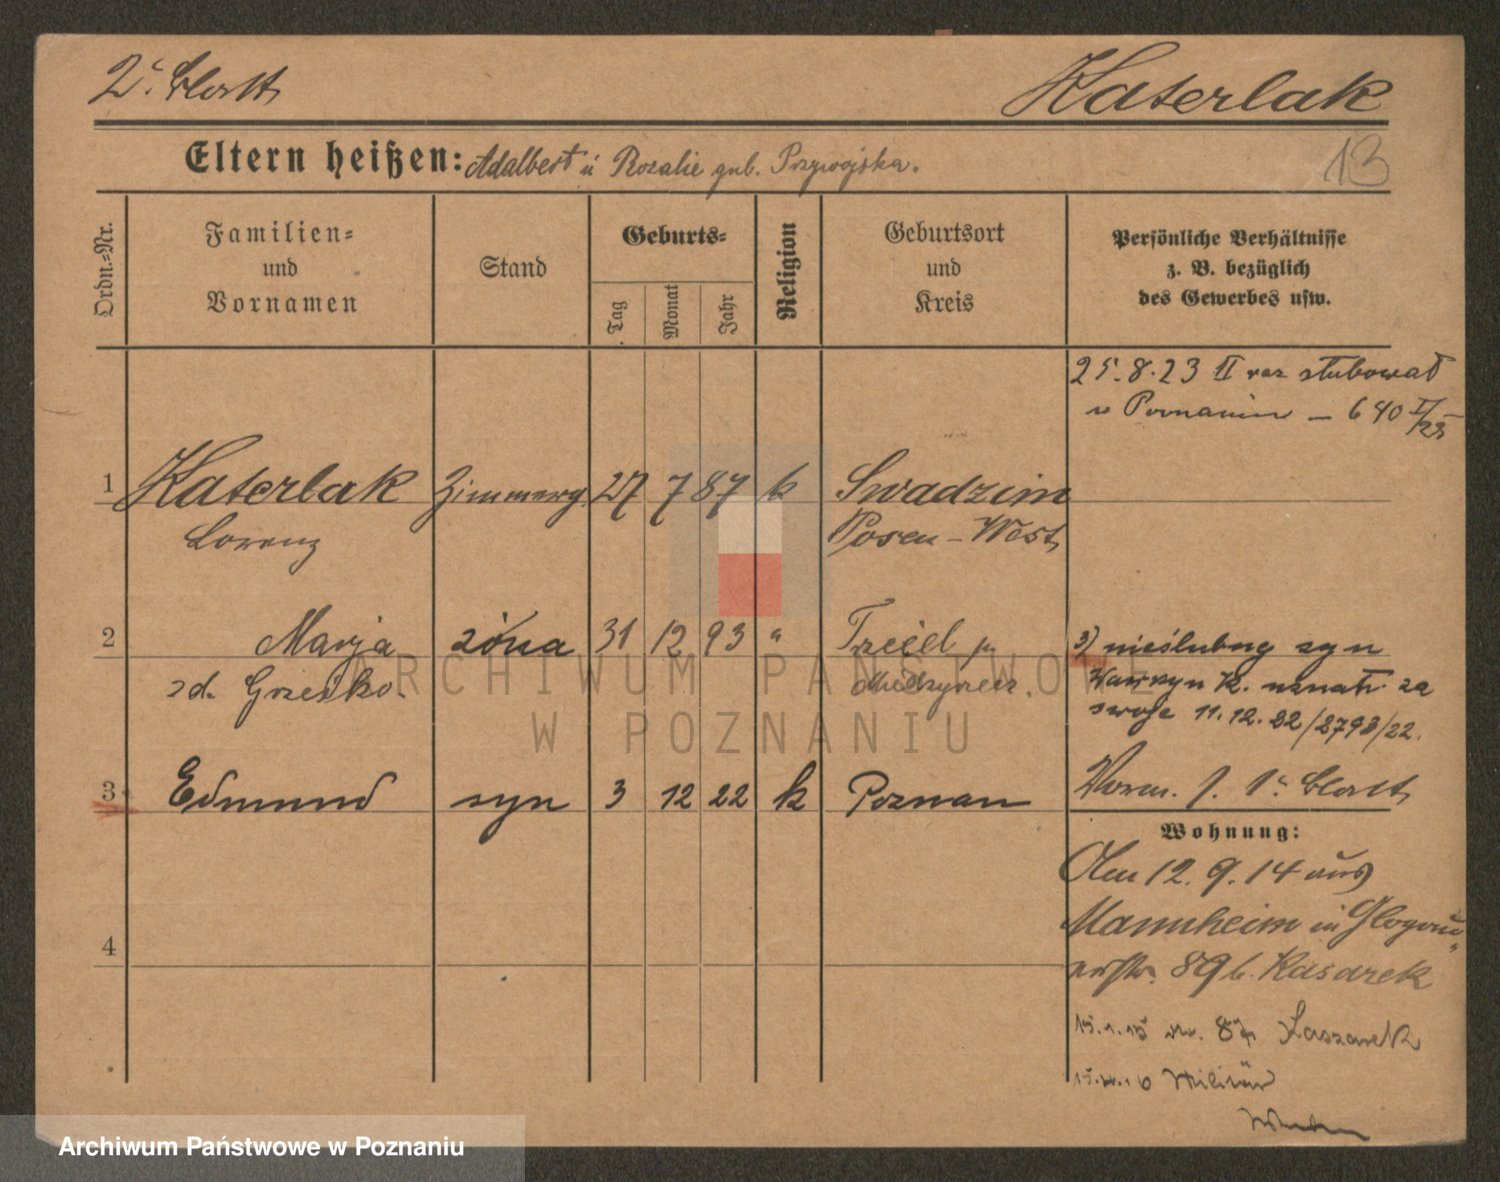 2. Blatt
Katerlak
Eltern heißen: Adalbert u Rozalie geb. Przywojska.
13
Ordn.=Nr.
Familien=
und
Vornamen
Stand
Geburts=
Tag
Monat
Jahr
Religion
Geburtsort
und
Kreis
Persönliche Verhältnisse
z. B. bezüglich
des Gewerbes usw.
25.8.23 II raz slubował
w Poznaniu – 640 I/23
1 Katerlak Zimmerg. 27 7 87 k Swadzim
Lorenz Posen–West
2 Marja żona 31 12 93 " Trciel p.
zd. Grzesko.
3) nieślubny syn
Wawrzyn K. uznał za
swoje 11.12.22/2793/22.
3 Edmund syn 3 12 22 k Poznan
Vorm. f. 1. Blatt
Wohnung:
Am 12.9.14 aus
Mannheim in Glogau
erstr. 89 b. Kasarek
15.1.15 87 Kaszarek
Militär
4
ARCHIWUM PAŃSTWOWE
W POZNANIU
Archiwum Państwowe w Poznaniu